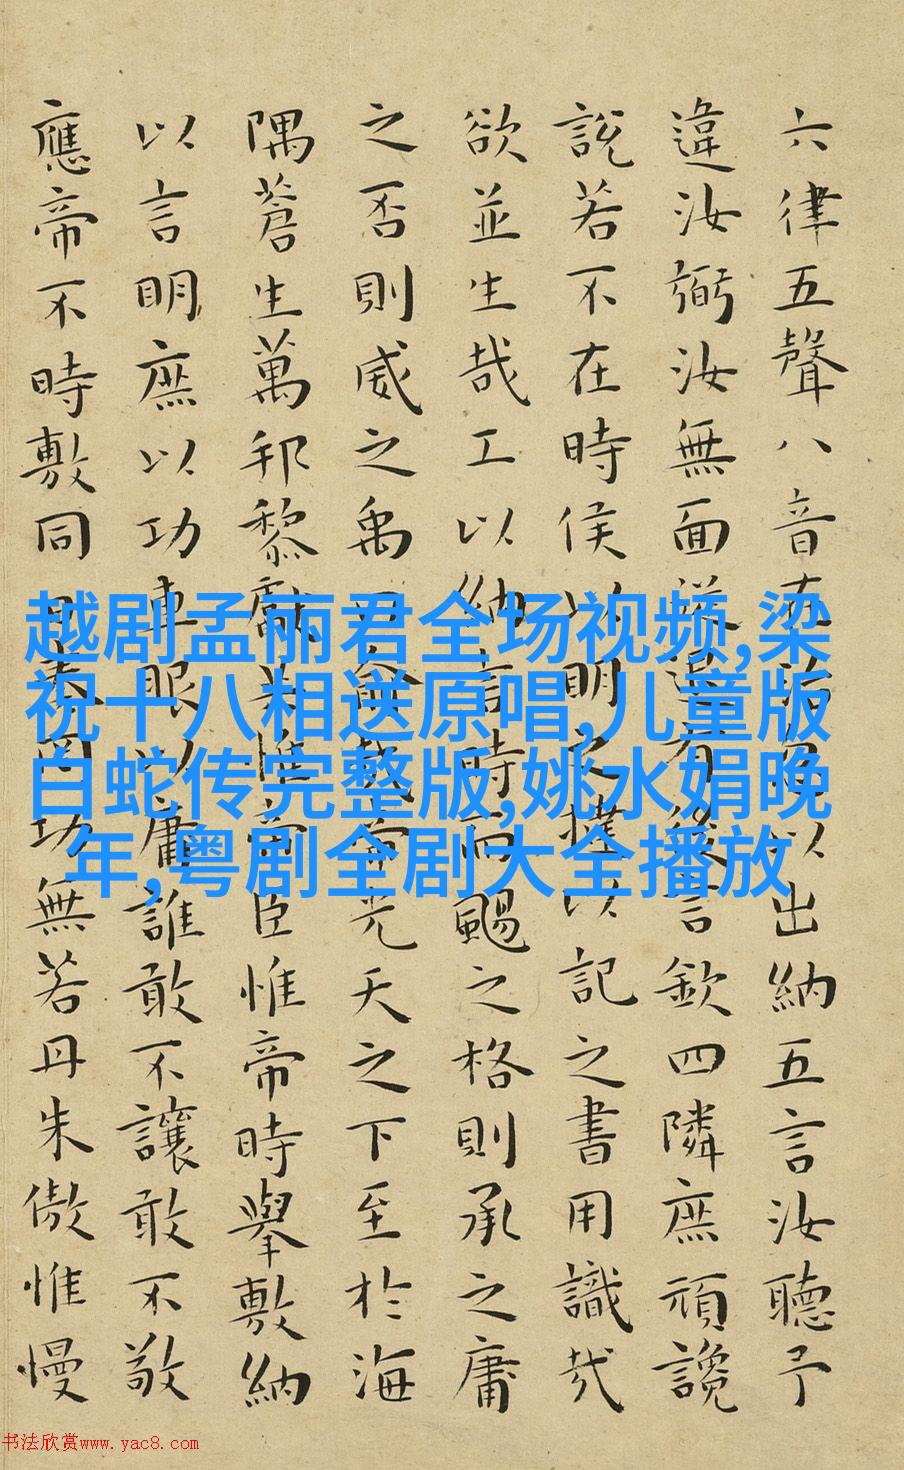 六律五聲八音在治以出納五言汝聽予
違汝弼汝無面從退有後言欽四隣庶頑讒
說若不在時侯以明之撻以記之書用識哉
欲並生哉工以納言時而颺之格則承之庸
之否則威之禹曰俞哉帝光天之下至於海
隅蒼生萬邦黎獻共惟帝臣惟帝時舉敷納
以言明庶以功車服以庸誰敢不讓敢不敬
應帝不時敷同日奏罔功無若丹朱傲惟慢
越剧孟丽君全场视频,梁
祝十八相送原唱,儿童版
白蛇传完整版,姚水娟晚
年,粤剧全剧大全播放
书法欣赏www.yac8.com